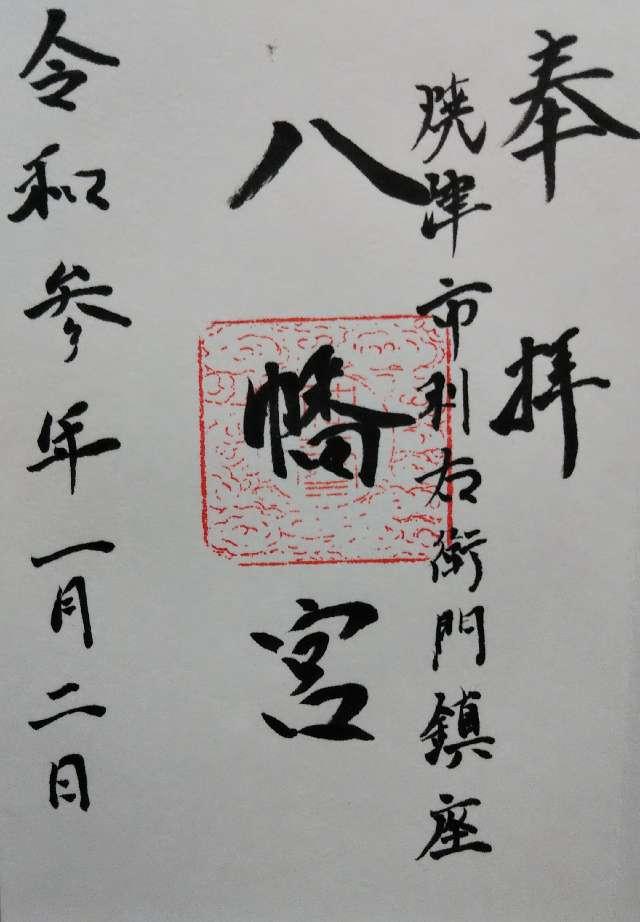 奉拝
焼津市利右衛門鎮座
八幡宮
令和参年一月二日